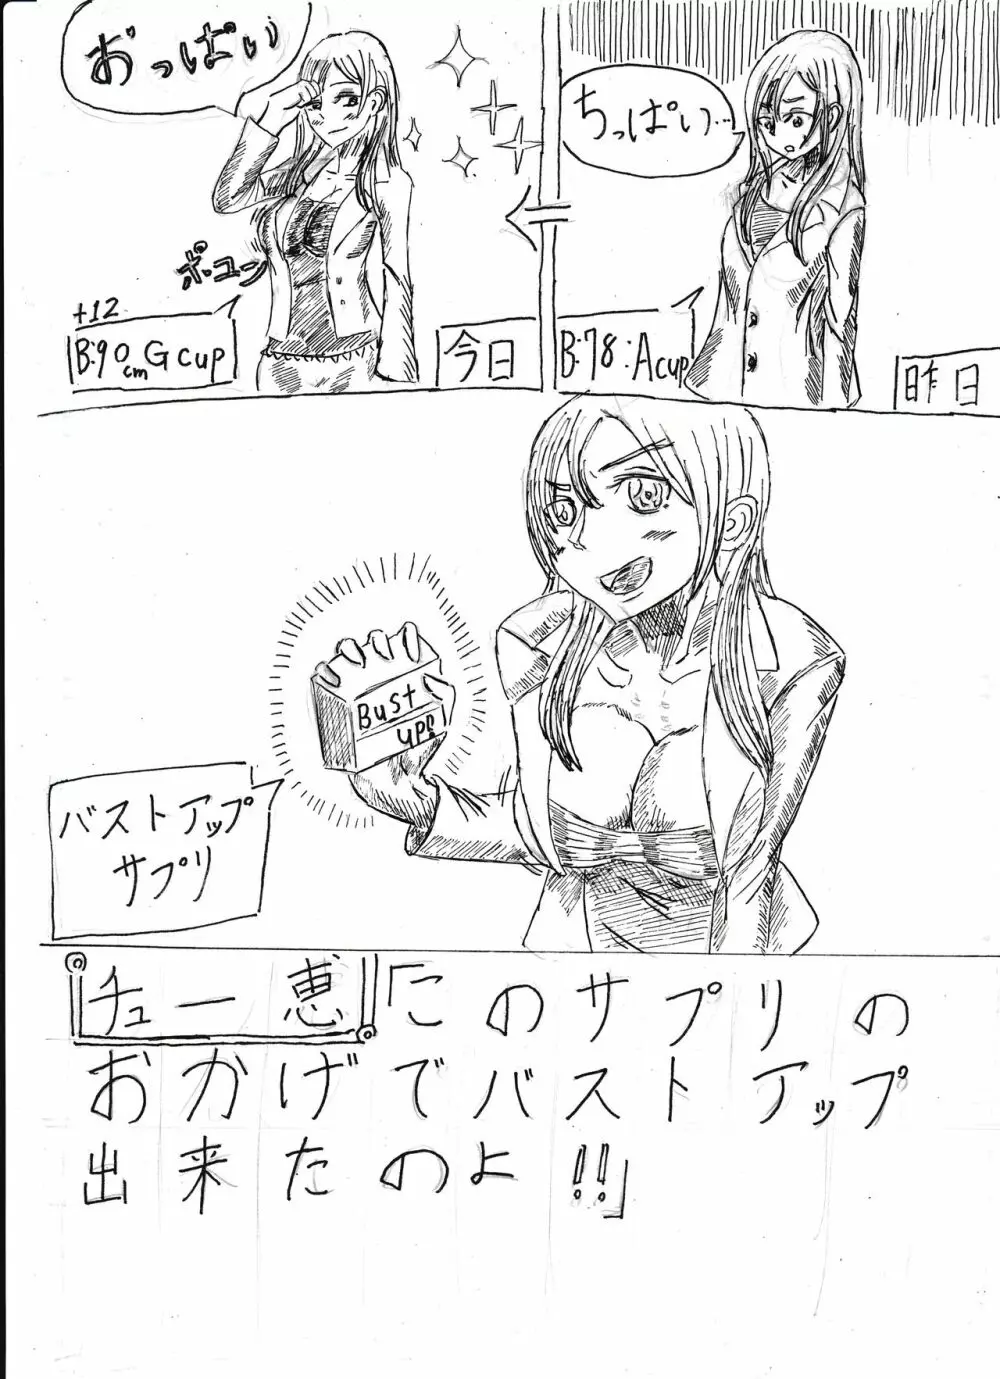 ちっぱい…
B:78:Acup
昨日
おっぱい
ポ.ユン
+12
B:90cm Gcup
今日
Bust
up!!
バストアップ
サプリ
チュー恵「このサプリの
おかげでバストアップ
出来たのよ!!」